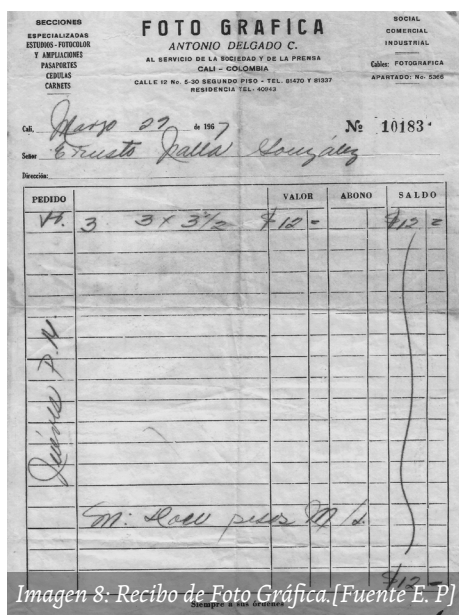 SECCIONES
ESPECIALIZADAS
ESTUDIOS - FOTOCOLOR
Y AMPLIACIONES
PASAPORTES
CEDULAS
CARNETS
FOTO GRAFICA
ANTONIO DELGADO C.
AL SERVICIO DE LA SOCIEDAD Y DE LA PRENSA
CALI - COLOMBIA
CALLE 12 No. 5-30 SEGUNDO PISO - TEL. 81470 Y 81337
RESIDENCIA TEL. 40943
SOCIAL
COMERCIAL
INDUSTRIAL
Cables: FOTOGRAFICA
APARTADO: No. 5366
Cali, Marzo 27 de 1967 Nº 10183
Señor Ernesto González
Dirección:
PEDIDO VALOR ABONO SALDO
3 3 x 3½ $12= $12=
P.M.
Son: Doce pesos M/
$12=
Siempre a sus órdenes
Imagen 8: Recibo de Foto Gráfica.[Fuente E. P]